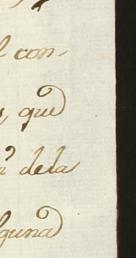 l con-
que
de la
lguna